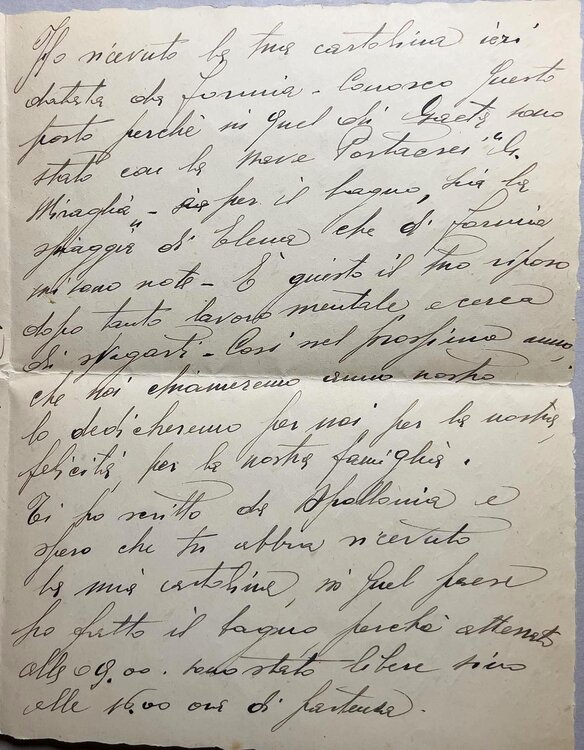 Ho ricevuto la tua cartolina ieri
datata da Formia - Conosco questo
posto perchè in quel di Gaeta sono
stato con la nave Portaerei "G.
Miraglia" - sia per il bagno, sia la
spiaggia di Elena che di Formia
mi sono note - È questo il tuo riposo
dopo tanto lavoro mentale e cerca
di svagarti - Così nel prossimo anno,
che noi chiameremo anno nostro
lo dedicheremo per noi, per la nostra
felicità, per la nostra famiglia.
Ti ho scritto da Apollonia e
spero che tu abbia ricevuto
la mia cartolina, in quel paese
ho fatto il bagno perchè atterrato
alle 09.00. sono stato libero sino
alle 16.00 ora di partenza.